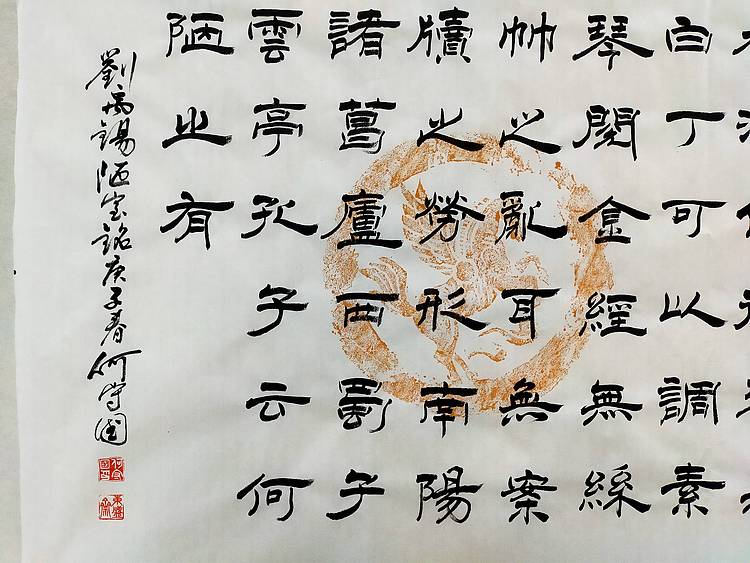 白丁可以調素
琴閱金經無絲
竹之亂耳無案
牘之勞形南陽
諸葛廬西蜀子
雲亭孔子云何
陋之有
劉禹錫陋室銘庚子春何守國
何守國印